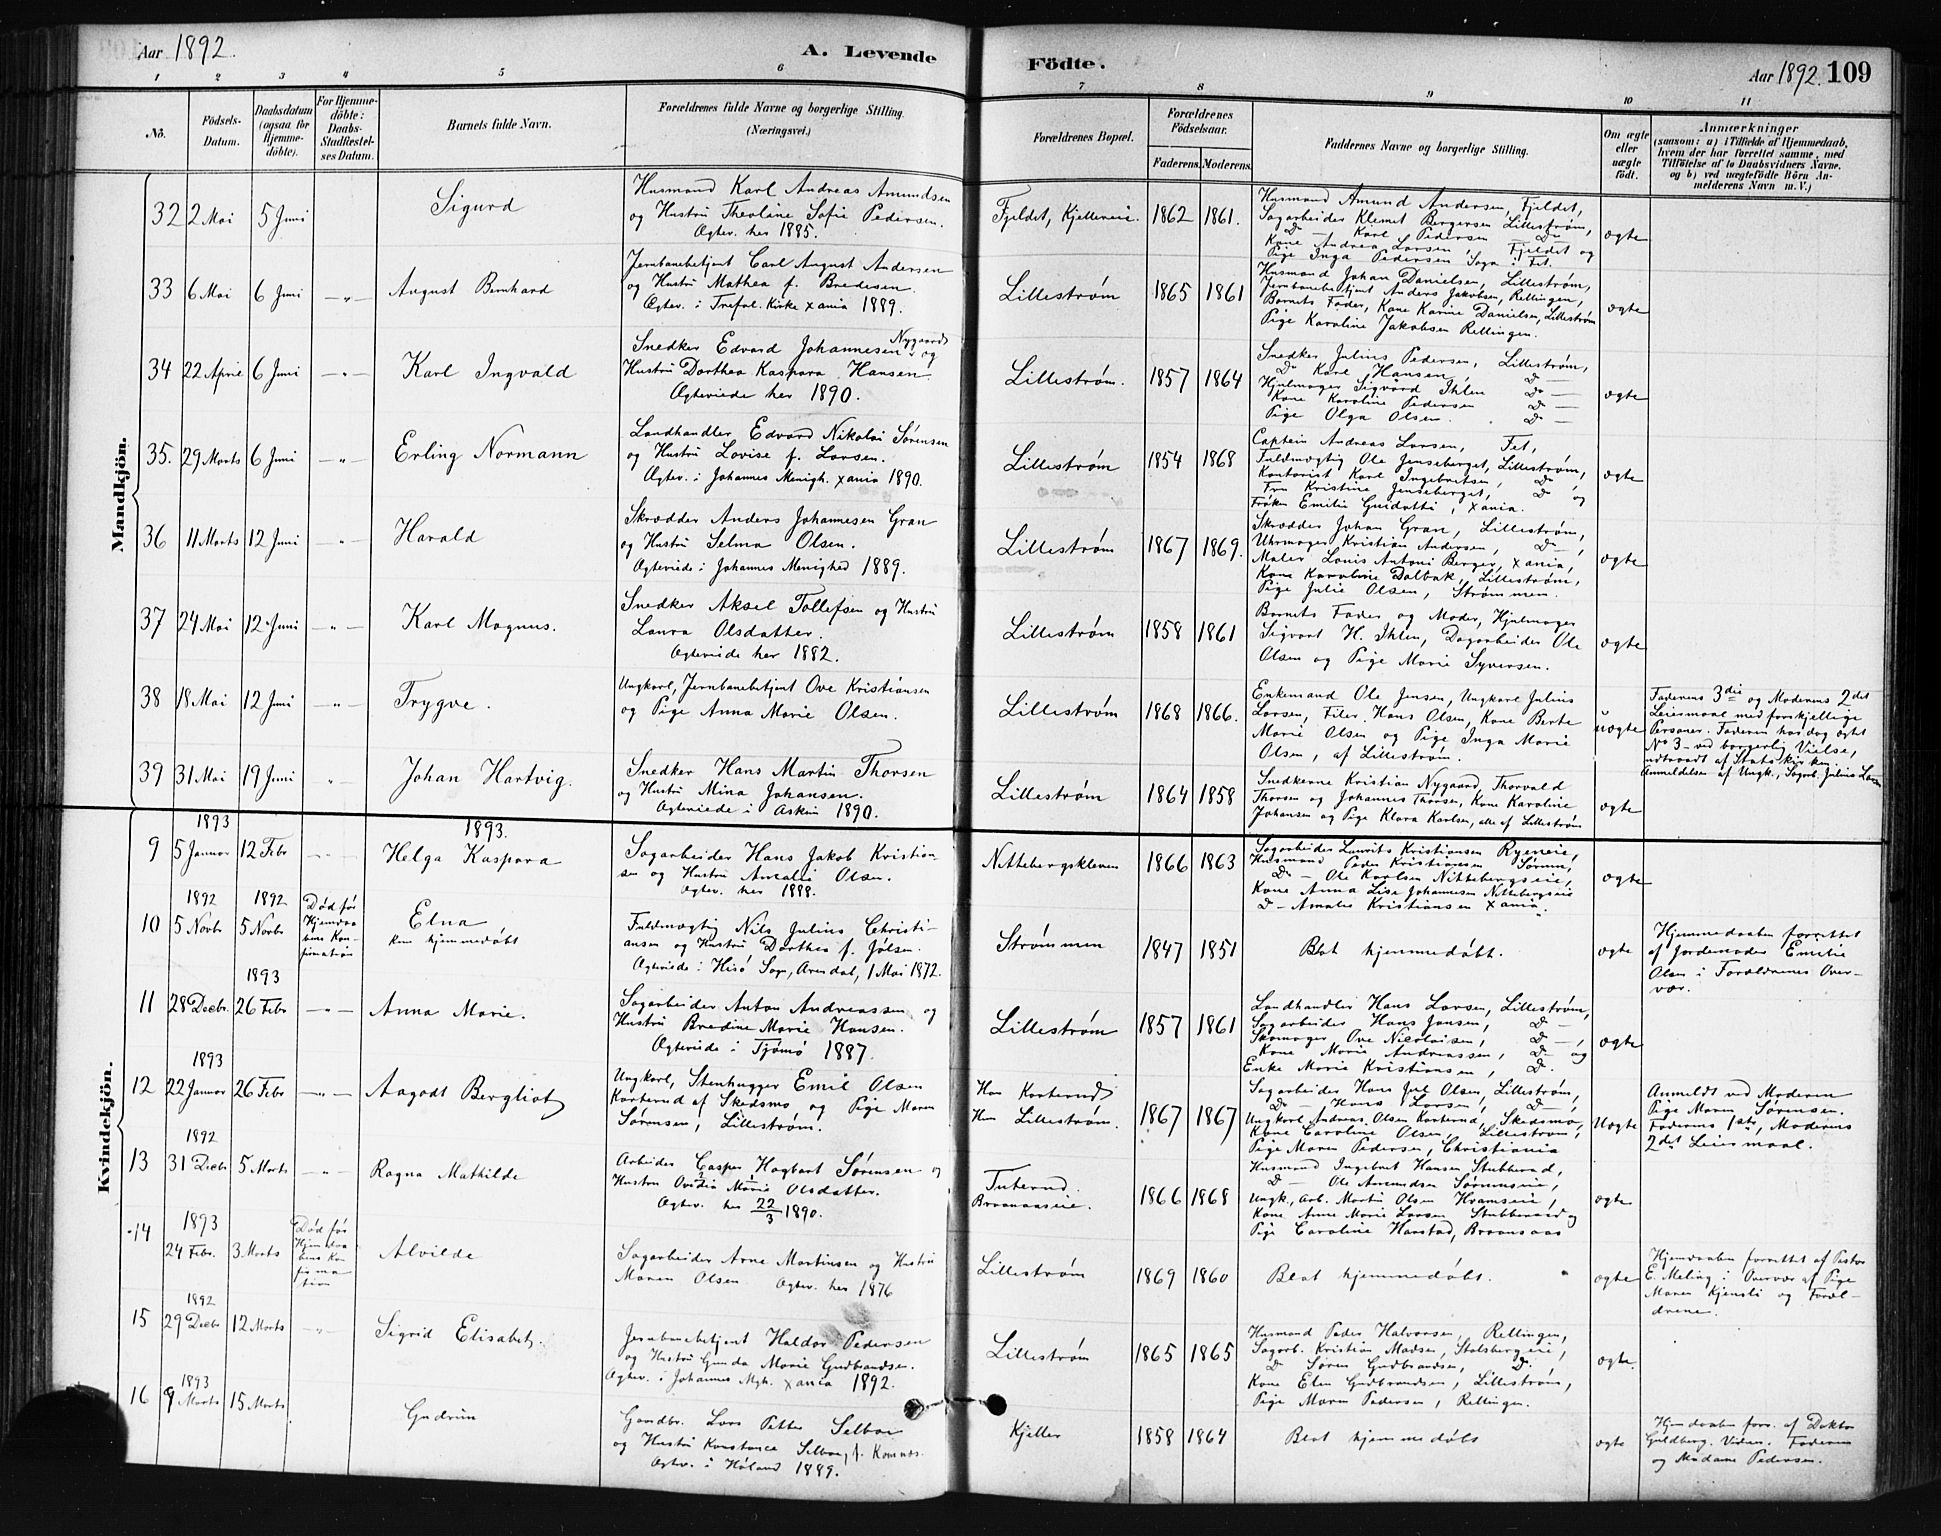 Aar 1892. A. Levende Födte. Aar 1892. 109
1 2 3 4 5 6 7 8 9 10 11
No. Födsels-Datum. Daabsdatum (ogsaa for Hjemmedöbte). For Hjemmedöbte: Daabs-Stadfæstelses Datum. Barnets fulde Navn. Forældrenes fulde Navne og borgerlige Stilling. (Næringsvei.) Forældrenes Bopæl. Forældrenes Födselsaar. Faderens. Moderens. Faddernes Navne og borgerlige Stilling. Om ægte eller uægte födt. Anmærkninger (saasom: a) i Tilfælde af Hjemmedaab, hvem der har forrettet samme, med Tilföielse af to Daabsvidners Navne. og b) ved uægtefödte Börn Anmelderens Navn m. V.)
Mandkjön.
32 2 Mai 5 Juni Sigurd
Husmand Karl Andreas Amundsen
og Hustru Theoline Sofie Pedersen.
Ægtev. her 1885.
Fjeldet, Kjellereie. 1862 1861.
Husmand Amund Andersen, Fjeldet,
Sagarbeider Klemet Bergersen Lillestrøm,
Do — Karl Pedersen Do
Kone Andrea Larsen, Fjeldet og
Pige Inga Pedersen Soga i Fet.
ægte
33 6 Mai 6 Juni —"— August Bernhard
Jernbanebetjent Carl August Andersen
og Hustru Mathea f. Bredesen.
Ægtev. i Trefol. Kirke Xania 1889.
Lillestrøm 1865 1861
Husmand Johan Danielsen, Lillestrøm,
Jernbanebetjent Anders Jakobsen, Rellingen,
Barnets Fader, Kone Karine Danielsen, Lillestrøm
Pige Karoline Jakobsen Rellingen.
ægte
34 22 April 6 Juni —"— Karl Ingvald
Snedker Edvard Johannesen Nygaard og
Hustru Dorthea Kaspara Hansen
Ægteviede her 1890.
Lillestrøm. 1857 1864
Snedker Julius Pedersen, Lillestrøm,
Do Karl Hansen Do —
Hjulmager Sigvard Ihlen Do —
Kone Karoline Pedersen Do —
Pige Olga Olsen. Do —
ægte
35. 29 Marts 6 Juni —"— Erling Normann
Landhandler Edvard Nikolai Sørensen
og Hustru Lovise f. Larsen.
Ægtev. i Johannes Menigh. Xania 1890.
Lillestrøm 1854 1868
Captein Andreas Larsen, Fet,
Fuldmægtig Ole Jenseberget, Lillestrøm,
Kontorist Karl Ingebretsen, Do
Fru Kristine Jenseberget, Do og
Frøken Emilie Guidotti, Xania.
ægte
36 11 Marts 12 Juni —"— Harald
Skrædder Anders Johannesen Gran
og Hustru Selma Olsen.
Ægteviede i Johannes Menighed 1889.
Lillestrøm 1867 1869.
Skrædder Johan Gran, Lillestrøm,
Uhrmager Kristian Andersen, Do —,
Maler Louis Antoni Berger, Xania,
Kone Karoline Dalbak, Lillestrøm,
Pige Julie Olsen, Strømmen.
ægte
37 24 Mai 12 Juni —"— Karl Magnus.
Snedker Aksel Tollefsen og Hustru
Laura Olsdatter.
Ægteviede her 1882.
Lillestrøm 1858 1861
Barnets Fader og Moder, Hjulmager
Sigvart H. Ihlen, Dagarbeider Ole
Olsen og Pige Marie Syversen.
ægte
38 18 Mai 12 Juni —"— Trygve.
Ungkarl, Jernbanebetjent Ove Kristiansen
og Pige Anna Marie Olsen.
Lillestrøm 1868 1866.
Enkemand Ole Jensen, Ungkarl Julius
Larsen, Filer Hans Olsen, Kone Berte
Marie Olsen og Pige Inga Marie
Olsen, af Lillestrøm.
uægte
Faderens 3die og Moderens 2det
Leiermaal med forskjellige
Personer. Faderen har dog ægtet
No 3 — ved borgerlig Vielse,
udtraadt af Statskirken.
Anmeldelsen af Ungk., Sagarb. Julius Larsen
39 31 Mai 19 Juni "— Johan Hartvig.
Snedker Hans Martin Thorsen
og Hustru Mina Johansen.
Ægteviede i Askim 1890.
Lillestrøm 1864 1858
Snedkerne Kristian Nygaard, Thorvald
Thorsen og Johannes Thorsen, Kone Karoline
Johansen og Pige Klara Karlsen, alle af Lillestrøm
ægte
Kvindekjön.
1893 1893.
9 5 Januar 12 Febr —"— Helga Kaspara
Sagarbeider Hans Jakob Kristian-
sen og Hustru Amalie Olsen.
Ægtev. her 1888.
Nittebergskleven 1866 1863
Sagarbeider Laurits Kristiansen Ryeneie,
Husmand Peder Kristiansen Sørum,
Do — Ole Karlsen Nittebergseie,
Kone Anna Lise Johannesen Nittebergseie
Do — Amalie Kristiansen Xania.
ægte
1892 1892
10 5 Novbr 5 Novbr Død før Hjemmedaabens Konfirmation Elna
kun hjemmedøbt
Fuldmægtig Nils Julius Christi-
ansen og Hustru Dorthea f. Jølsen.
Ægteviede i Hisø Sogn, Arendal, 1 Mai 1872.
Strømmen 1847 1851 Blot hjemmedøbt. ægte
Hjemmedaaben forrettet
af Jordemoder Emilie
Olsen i Forældrenes Over-
vær.
1893
11 28 Decbr. 26 Febr —"— Anna Marie.
Sagarbeider Anton Andreassen og
Hustru Bredine Marie Hansen.
Ægteviede i Tjømø 1887.
Lillestrøm 1857 1861
Landhandler Hans Larsen, Lillestrøm,
Sagarbeider Hans Jansen, Do —,
Skomager Ove Nicolaisen, Do —,
Kone Marie Andreassen, Do — og
Enke Marie Kristiansen, Do.
ægte
1893
12 22 Januar 26 Febr —"— Aagodt Bergliot
Ungkarl, Stenhugger Emil Olsen
Korterud af Skedsmo og Pige Maren
Sørensen, Lillestrøm.
Han Korterud
Hun Lillestrøm. 1867 1867
Sagarbeider Hans Jul Olsen, Lillestrøm,
Do — Hans Larsen, Do —,
Ungkarl Andreas Olsen Korterud, Skedsmo,
Kone Caroline Olsen, Lillestrøm,
Pige Maren Pedersen, Christiania
Uægte
Anmeldt ved Moderen
Pige Maren Sørensen.
Faderens 1ste, Moderens
2det Leiermaal.
1892
13 31 Decbr 5 Marts —"— Ragna Mathilde
Arbeider Casper Hagbart Sørensen og
Hustru Ovidia Marie Olsdatter.
Ægtev. her 22/3 1890.
Tuterud.
Braanaaseie. 1866 1868
Husmand Ingebret Hansen Stubberud,
Do — Ole Amundsen Sørumseie,
Ungk, Arb. Martin Olsen Hvamseie,
Kone Anne Marie Larsen Stubberud og
Pige Caroline Harstad, Braanaas
ægte
1893
14 24 Febr. 3 Marts Død før Hjemdaabens Konfirmation Alvilde
Sagarbeider Arne Martinsen og Hustru
Maren Olsen Ægtev. her 1876
Lillestrøm 1869 1860 Blot hjemmedøbt. ægte
Hjemdaaben forrettet af Pastor
E. Meling i Overvær af Pige
Maren Kjensli og Foræl-
drene.
1892
15 29 Decbr 12 Marts —"— Sigrid Elisabeth.
Jernbanebetjent Haldor Pedersen
og Hustru Gunda Marie Gudbrandsen.
Ægtev. i Johannes Mgh. Xania 1892.
Lillestrøm 1865 1865
Husmand Peder Halvorsen, Rellingen,
Sagarb. Kristian Madsen, Stalsbergeie,
Do Søren Gudbrandsen, Do,
Kone Elen Gudbrandsen, Lillestrøm,
Pige Maren Pedersen, Rellingen.
ægte.
1893
16 9 Marts 15 Marts Gudrun
Gaardbr. Lars Petter Selboe
og Hustru Konstance Selboe, f. Komnæs.
Ægtev. i Høland 1889.
Kjeller 1858 1864 Blot hjemmedøbt ægte
Hjemdaaben forr. af Doktor
Guldberg. Vidner. Faderen
og Madame Pedersen.